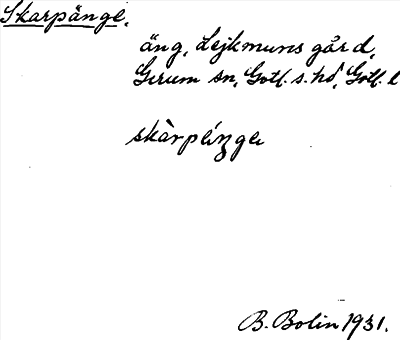 Skarpänge.
äng, Lejkmuns gård,
Gerum sn, Gotl. s. hd, Gotl. l
skàrpä́ŋge
B. Bolin 1931.